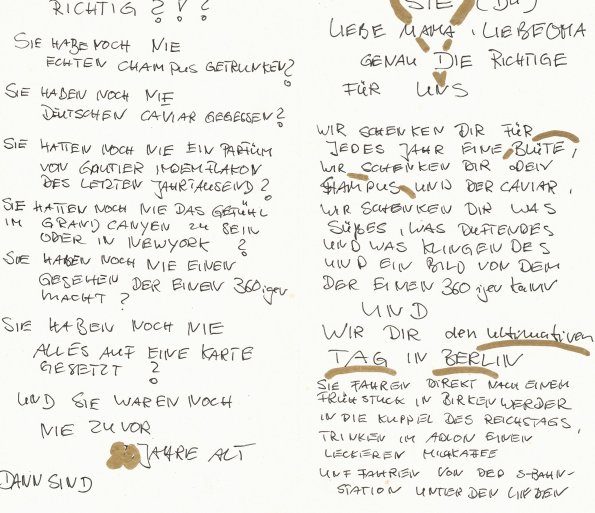 RICHTIG ? ? ?
SIE HABE NOCH NIE
ECHTEN CHAMPUS GETRUNKEN?
SIE HABEN NOCH NIE
DEUTSCHEN CAVIAR GEGESSEN?
SIE HATTEN NOCH NIE EIN PARFÜM
VON GAUTIER IM DEM FLAKON
DES LETZTEN JAHRTAUSEND?
SIE HATTEN NOCH NIE DAS GEFÜHL
IM GRAND CANYEN ZU SEIN
ODER IN NEWYORK ?
SIE HABEN NOCH NIE EINEN
GESEHEN DER EINEN 360 iger
MACHT ?
SIE HABEN NOCH NIE
ALLES AUF EINE KARTE
GESETZT ?
UND SIE WAREN NOCH
NIE ZUVOR
JAHRE ALT
DANN SIND
SIE (DU)
LIEBE MAMA, LIEBE OMA
GENAU DIE RICHTIGE
FÜR UNS
WIR SCHENKEN DIR FÜR
JEDES JAHR EINE BLÜTE,
WIR SCHENKEN DIR DEIN
SHAMPUS UND DER CAVIAR,
WIR SCHENKEN DIR WAS
SÜßES, WAS DUFTENDES
UND WAS KLINGENDES
UND EIN BILD VON DEM
DER EINEN 360 iger kann
UND
WIR DIR den ultimativen
TAG IN BERLIN
SIE FAHREN DIREKT NACH EINEM
FRÜHSTÜCK IN BIRKENWERDER
IN DIE KUPPEL DES REICHSTAGS,
TRINKEN IM ADLON EINEN
LECKIEREN MILCHKAFFE
UNF FAHREN VON DER S-BAHN-
STATION UNTER DEN LINDEN